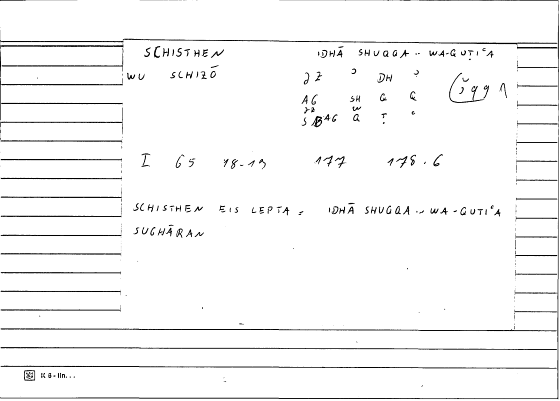 SCHISTHEN IDHĀ SHUQQA .. WA-QUṬIʿA
WU SCHIZŌ ZZ ʾ DH ʾ
AG SH Q Q
ZZ W
AG Q Ṭ ʿ
I 65 18-19 177 178.6
SCHISTHEN EIS LEPTA = IDHĀ SHUQQA .. WA-QUTIʿA
SUGHĀRAN